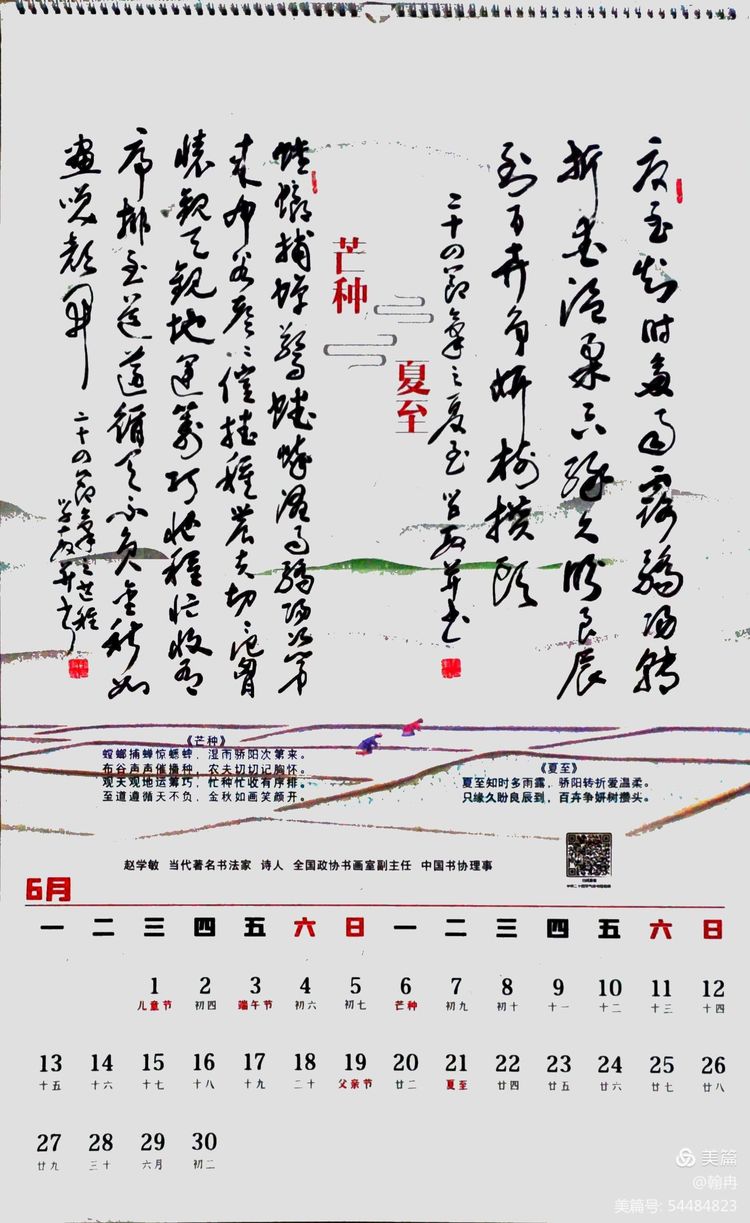 夏至知时多雨露骄阳转
折爱温柔只缘久盼良辰
到百卉争妍树攒头
二十四节氣之夏至 学敏并书
芒种
夏至
螳螂捕蝉惊蟋蟀湿雨骄阳次第
来布谷声声催播种农夫切切记胸
怀观天观地运筹巧忙种忙收有
序排至道遵循天不负金秋如
画笑颜开
二十四节氣之芒种
学敏并书
《芒种》
螳螂捕蝉惊蟋蟀，湿雨骄阳次第来。
布谷声声催播种，农夫切切记胸怀。
观天观地运筹巧，忙种忙收有序排。
至道遵循天不负，金秋如画笑颜开。
《夏至》
夏至知时多雨露，骄阳转折爱温柔。
只缘久盼良辰到，百卉争妍树攒头。
赵学敏 当代著名书法家 诗人 全国政协书画室副主任 中国书协理事
6月
一 二 三 四 五 六 日 一 二 三 四 五 六 日
1 2 3 4 5 6 7 8 9 10 11 12
儿童节 初四 端午节 初六 初七 芒种 初九 初十 十一 十二 十三 十四
13 14 15 16 17 18 19 20 21 22 23 24 25 26
十五 十六 十七 十八 十九 二十 父亲节 廿二 夏至 廿四 廿五 廿六 廿七 廿八
27 28 29 30
廿九 三十 六月 初二
美篇
@翰冉
美篇号: 54484823